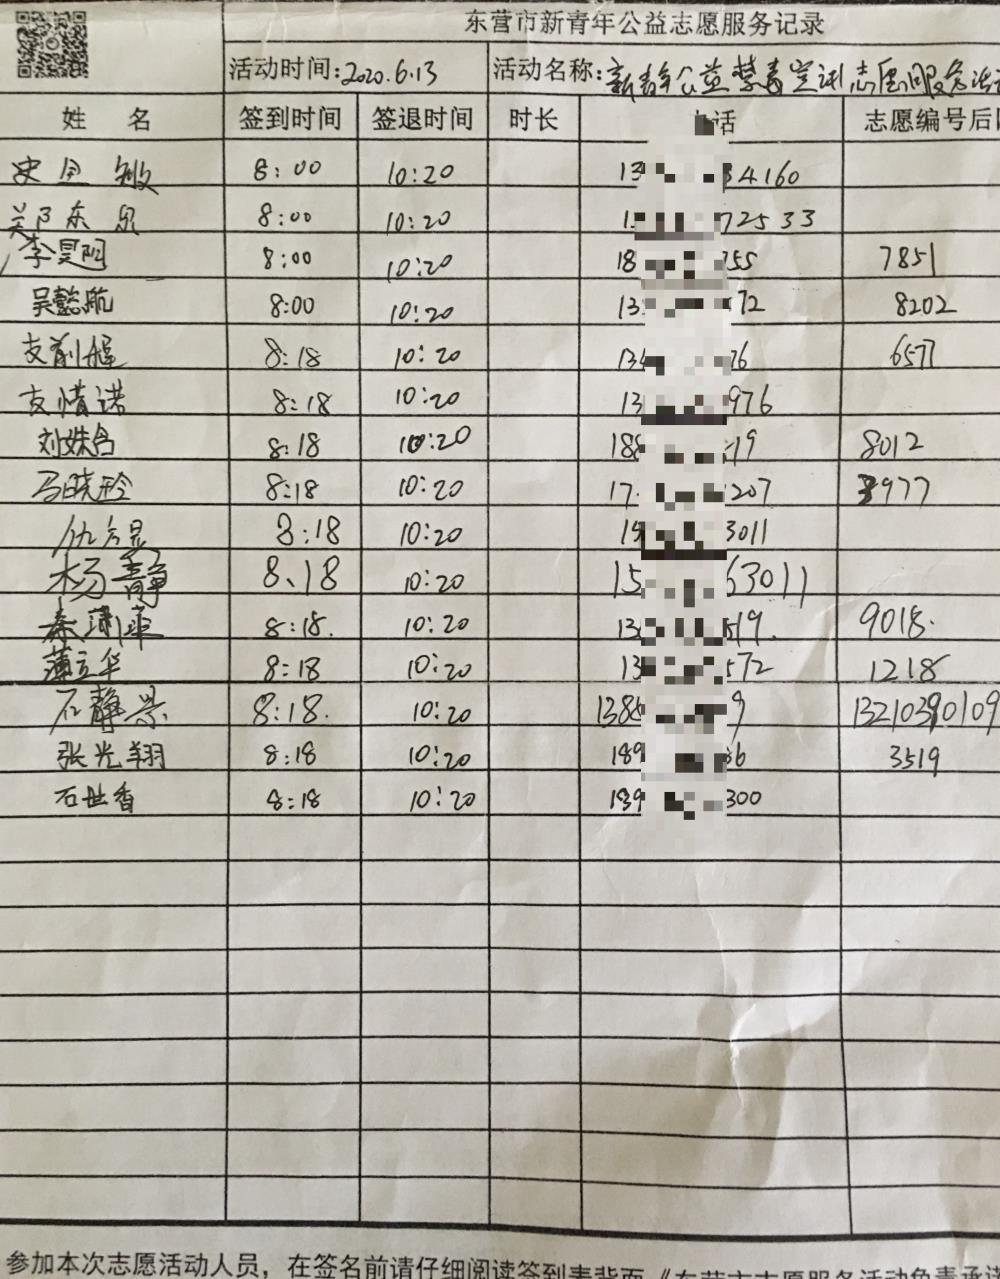 东营市新青年公益志愿服务记录
活动时间:2020.6.13 活动名称:新青年公益禁毒宣讲志愿服务活动
姓 名 签到时间 签退时间 时长 话 志愿编号后
史 敏 8:00 10:20 13 34160
郑东 8:00 10:20 1 72533
李昊阳 8:00 10:20 18 755 7851
吴懿航 8:00 10:20 13 72 8202
支 8:18 10:20 13 76 6577
支情诺 8:18 10:20 13 976
刘姝含 8:18 10:20 188 19 8012
马晓玲 8:18 10:20 17 1207 3977
仇 8:18 10:20 15 3011
杨静 8、18 10:20 15 63011
秦 8:18. 10:20 13 819. 9018.
薄立华 8:18 10:20 13 572 1218
石静 8:18. 10:20 138 9 13210390109
张光翔 8:18 10:20 189 36 3519
石世香 8:18 10:20 139 300
参加本次志愿活动人员，在签名前请仔细阅读签到表背面《东营市志愿服务活动免责承诺